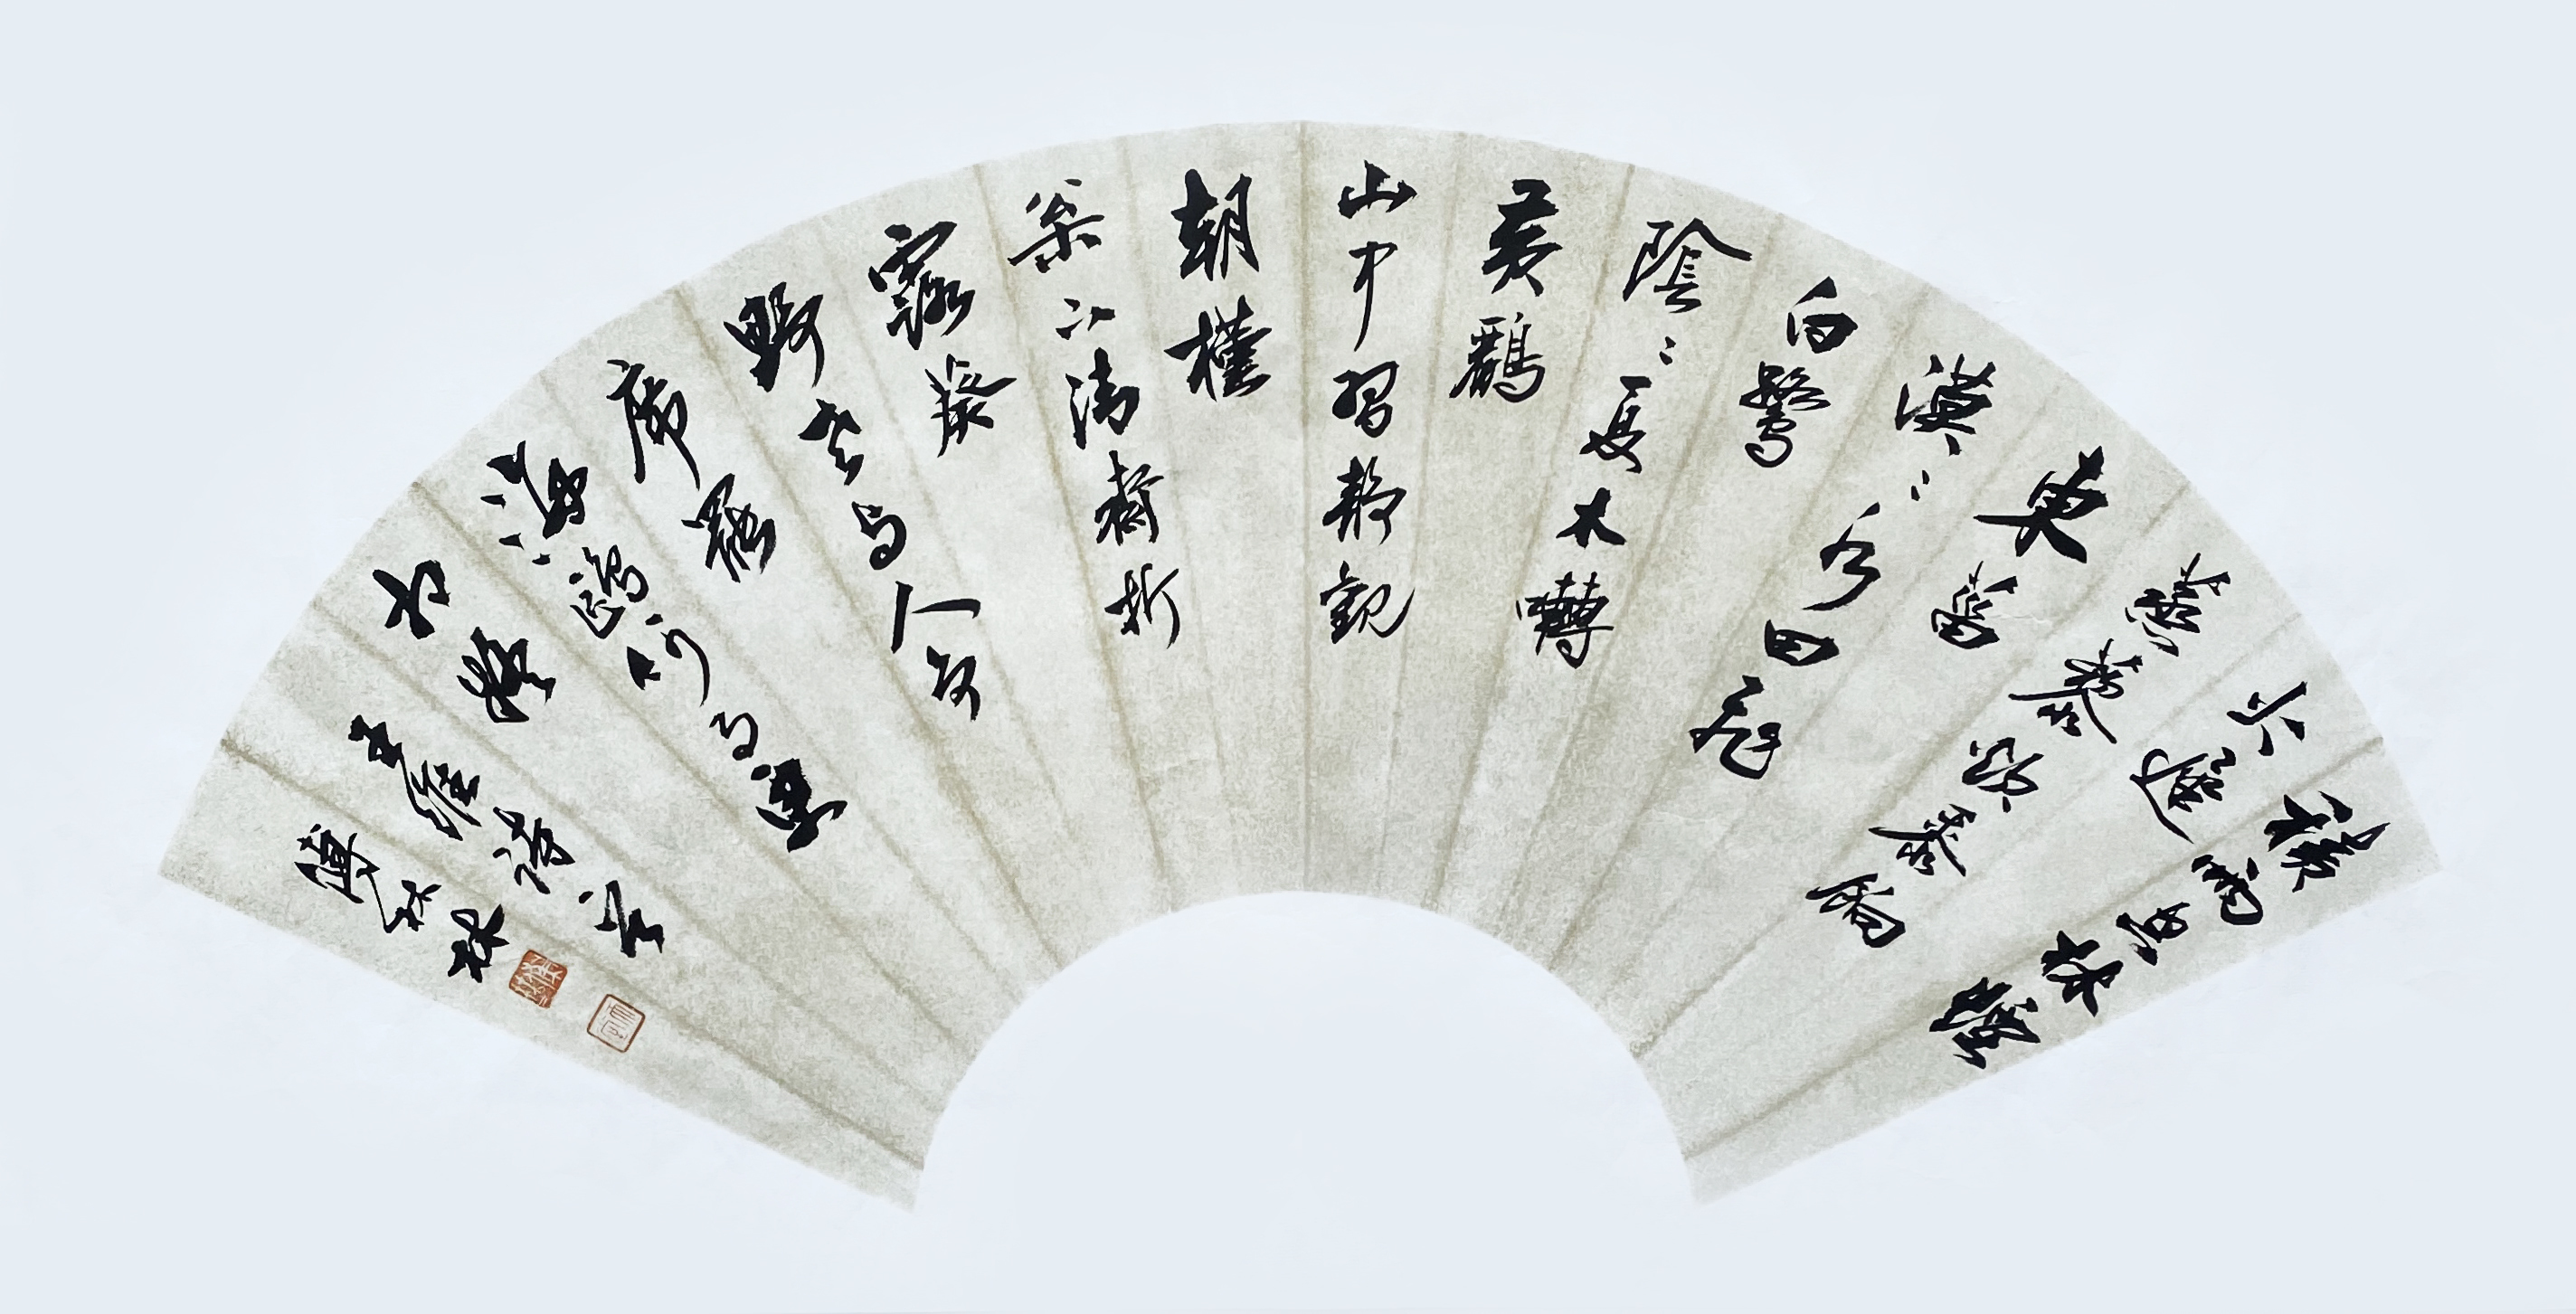 積雨空林煙
火遲
蒸藜炊黍餉
東菑
漠々水田飛
白鷺
陰々夏木囀
黃鸝
山中習靜觀
朝槿
松下清齋折
露葵
野老与人爭
席罷
海鷗何事更
相疑
王維詩